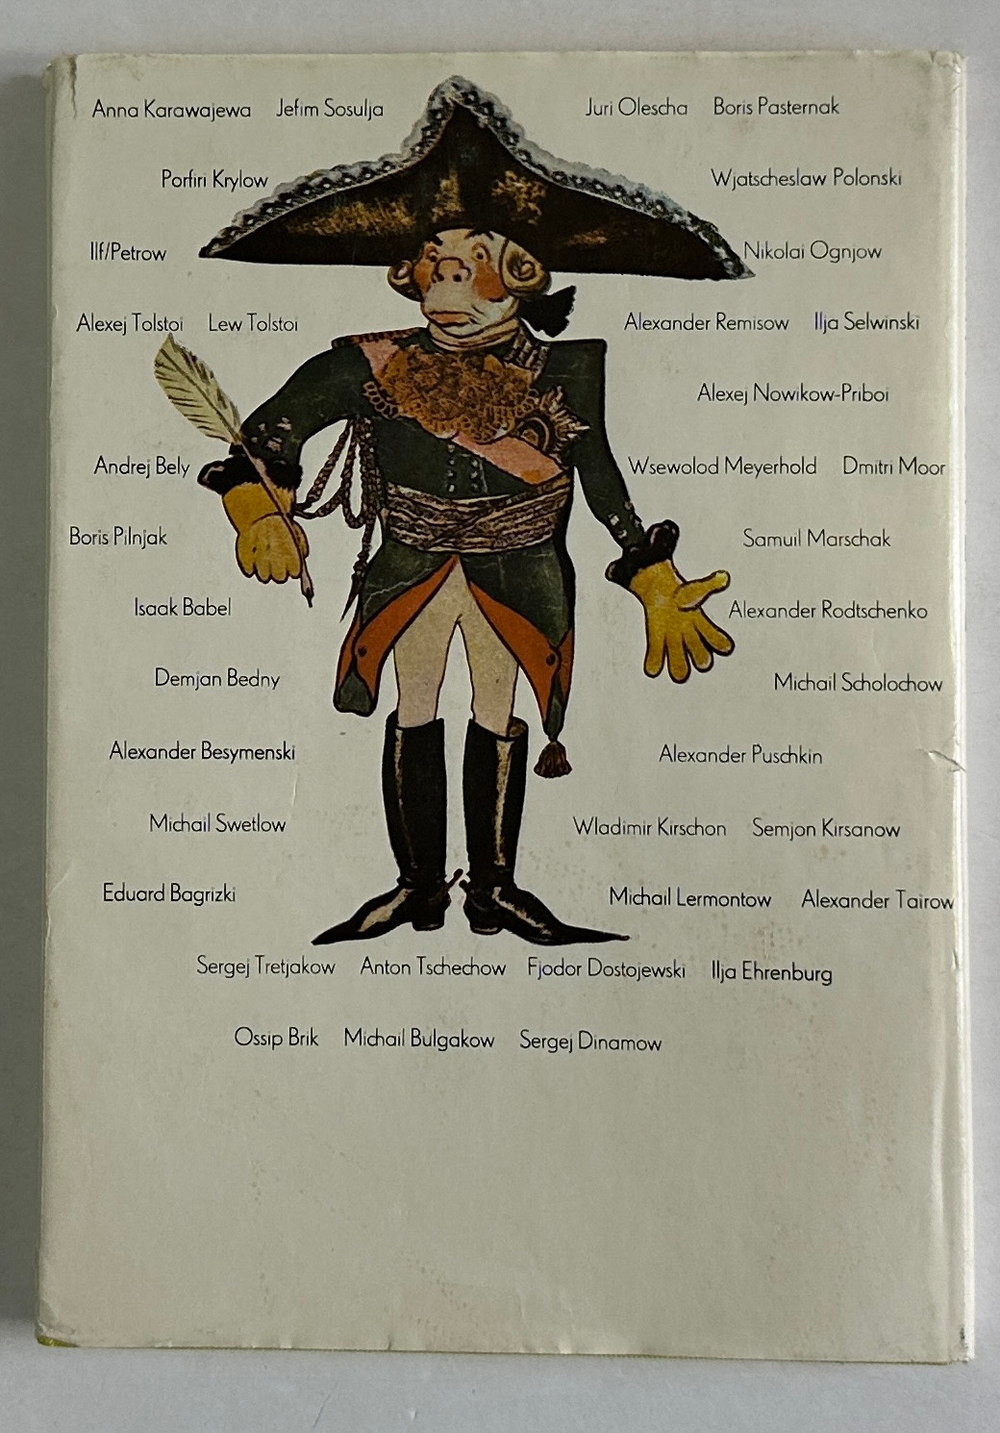 Anna Karawajewa Jefim Sosulja Juri Olescha Boris Pasternak
Porfiri Krylow Wjatscheslaw Polonski
Ilf/Petrow Nikolai Ognjow
Alexej Tolstoi Lew Tolstoi Alexander Remisow Ilja Selwinski
Alexej Nowikow-Priboi
Andrej Bely Wsewolod Meyerhold Dmitri Moor
Boris Pilnjak Samuil Marschak
Isaak Babel Alexander Rodtschenko
Demjan Bedny Michail Scholochow
Alexander Besymenski Alexander Puschkin
Michail Swetlow Wladimir Kirschon Semjon Kirsanow
Eduard Bagrizki Michail Lermontow Alexander Tairow
Sergej Tretjakow Anton Tschechow Fjodor Dostojewski Ilja Ehrenburg
Ossip Brik Michail Bulgakow Sergej Dinamow